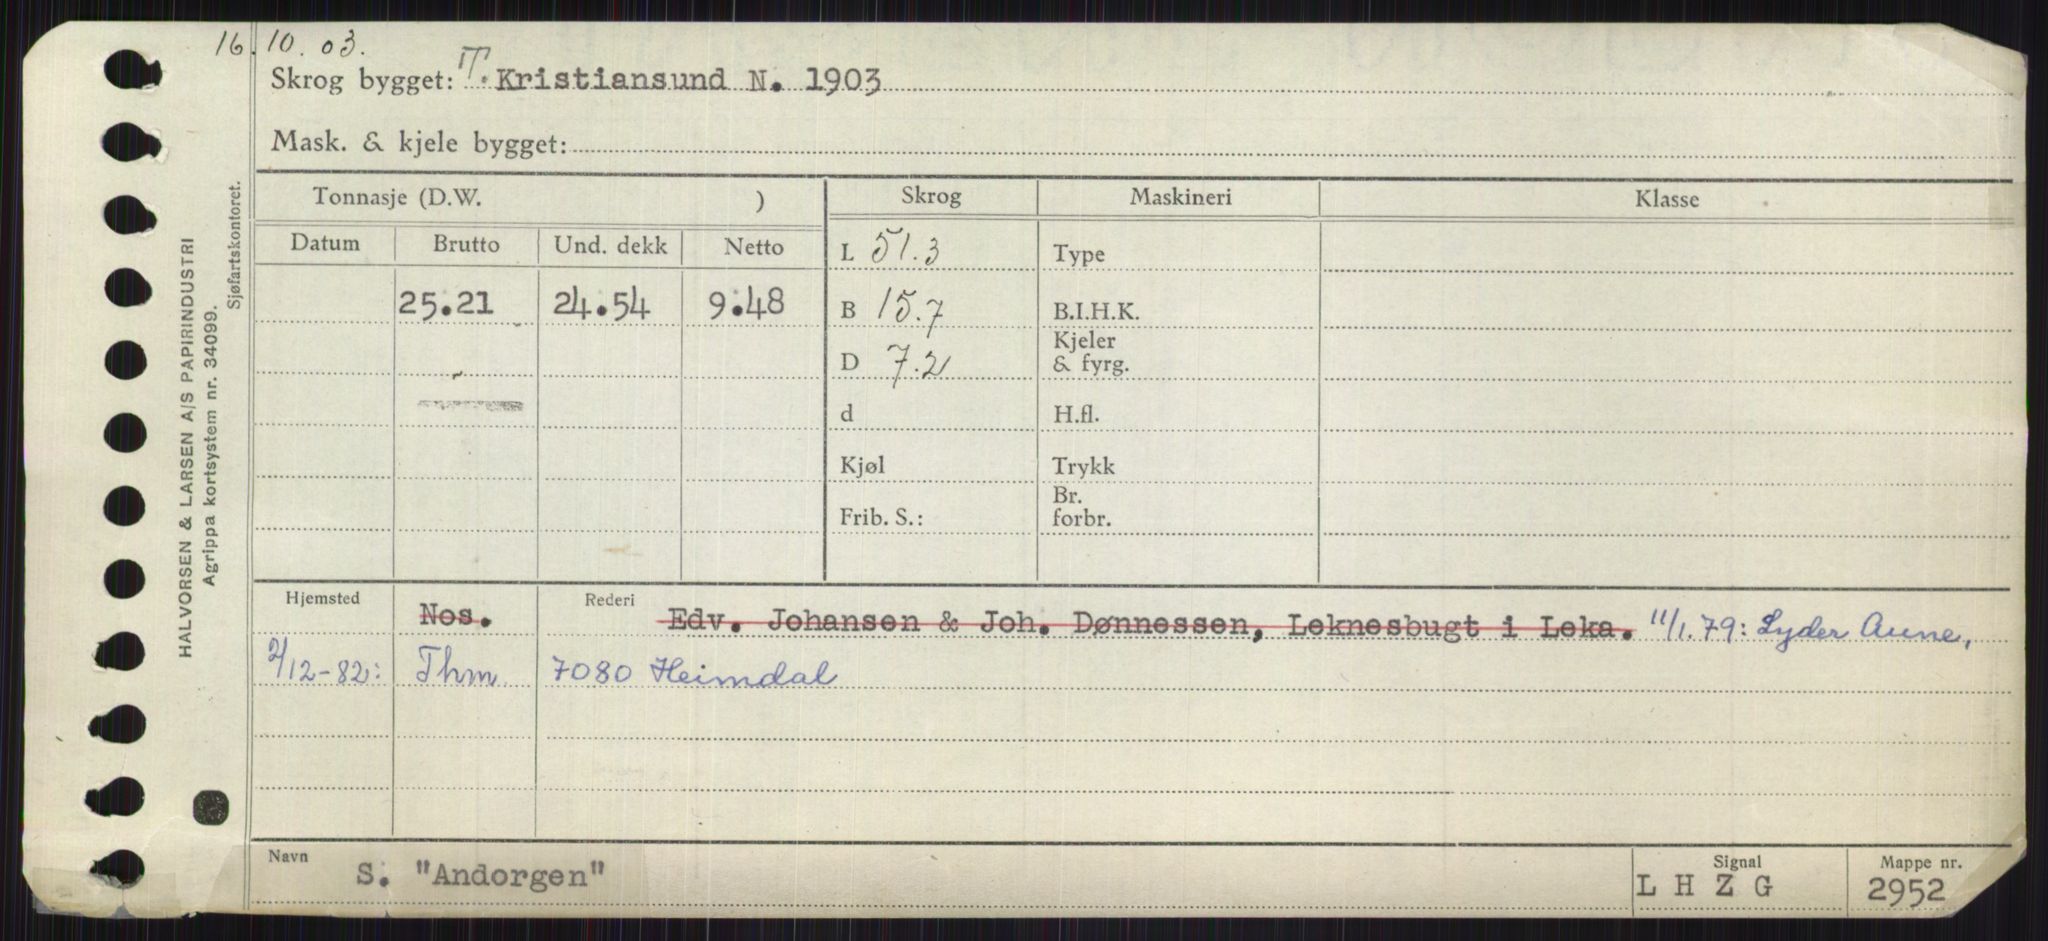 16.10.03.
Skrog bygget: T. Kristiansund N. 1903
Mask. & kjele bygget:
Tonnasje (D.W. ) Skrog Maskineri Klasse
Datum Brutto Und. dekk Netto L 51.3 Type
25.21 24.54 9.48 B 15.7 B.I.H.K.
D 7.2 Kjeler & fyrg.
d H.fl.
Kjøl Trykk
Frib. S.: Br. forbr.
Hjemsted Nos. Rederi Edv. Johansen & Joh. Dønnessen, Leknesbugt i Leka. 11/1.79: Lyder Aune,
2/12-82: Thm. 7080 Heimdal
Navn S. "Andorgen" Signal L H Z G Mappe nr. 2952
HALVORSEN & LARSEN A/S PAPIRINDUSTRI
Agrippa kortsystem nr. 34099.
Sjøfartskontoret.